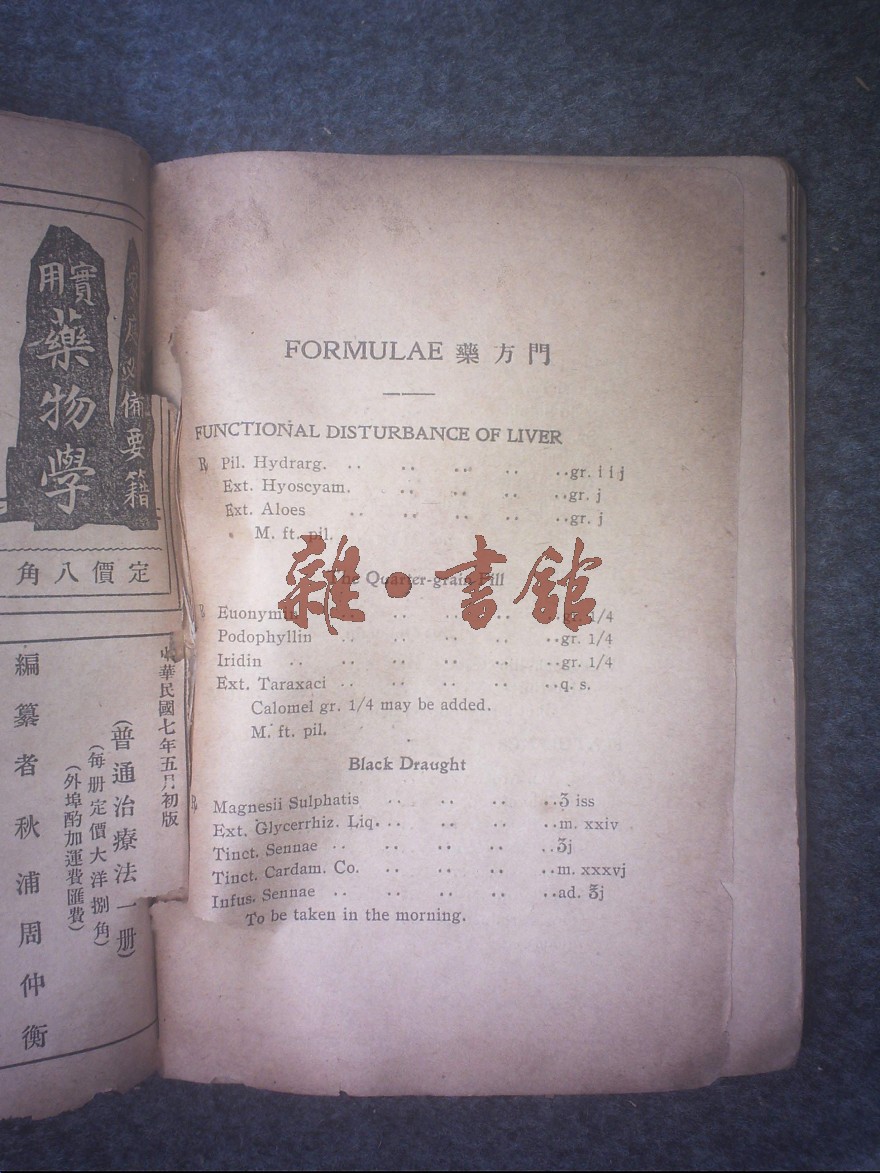 實用
藥物學
備要籍
定價八角
中華民國七年五月初版
(普通治療法一册)
(每册定價大洋捌角)
(外埠酌加運費匯費)
編纂者秋浦周仲衡
FORMULAE 藥方門
FUNCTIONAL DISTURBANCE OF LIVER
℞ Pil. Hydrarg. .. .. .. .. ..gr. iij
Ext. Hyoscyam. .. .. .. ..gr. j
Ext. Aloes .. .. .. .. ..gr. j
M. ft. pil.
The Quarter-grain Pill
℞ Euonymin .. .. .. .. ..gr. 1/4
Podophyllin .. .. .. .. ..gr. 1/4
Iridin .. .. .. .. .. ..gr. 1/4
Ext. Taraxaci .. .. .. .. ..q. s.
Calomel gr. 1/4 may be added.
M. ft. pil.
Black Draught
℞ Magnesii Sulphatis .. .. .. ..ʒ iss
Ext. Glycerrhiz. Liq. .. .. .. ..m. xxiv
Tinct. Sennae .. .. .. .. ..ʒj
Tinct. Cardam. Co. .. .. .. ..m. xxxvj
Infus. Sennae .. .. .. .. ..ad. ℥j
To be taken in the morning.
雜·書館